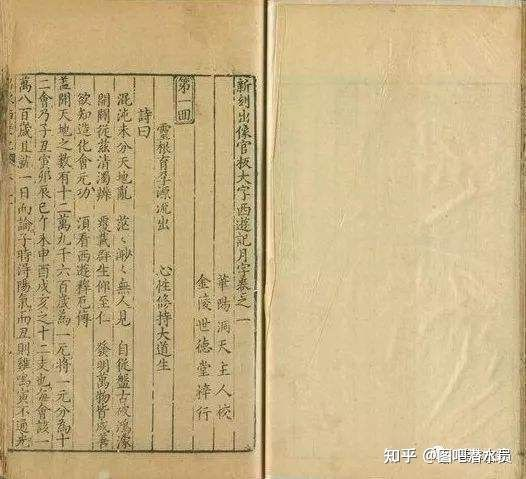 新刻出像官板大字西遊記月字卷之一
華陽洞天主人校
金陵世德堂梓行
第一回
靈根育孕源流出 心性修持大道生
詩曰
混沌未分天地亂 茫〻渺〻無人見 自從盤古破鴻濛
開闢從茲清濁辨 覆載群生仰至仁 發明萬物皆成善
欲知造化會元功 須看西遊釋厄傳
蓋聞天地之數有十二萬九千六百歲為一元將一元分為十
二會乃子丑寅卯辰巳午未申酉戌亥之十二支也每會該一
萬八百歲且就一日而論子時得陽氣而丑則雞鳴寅不通光
知乎 @图吧潜水员